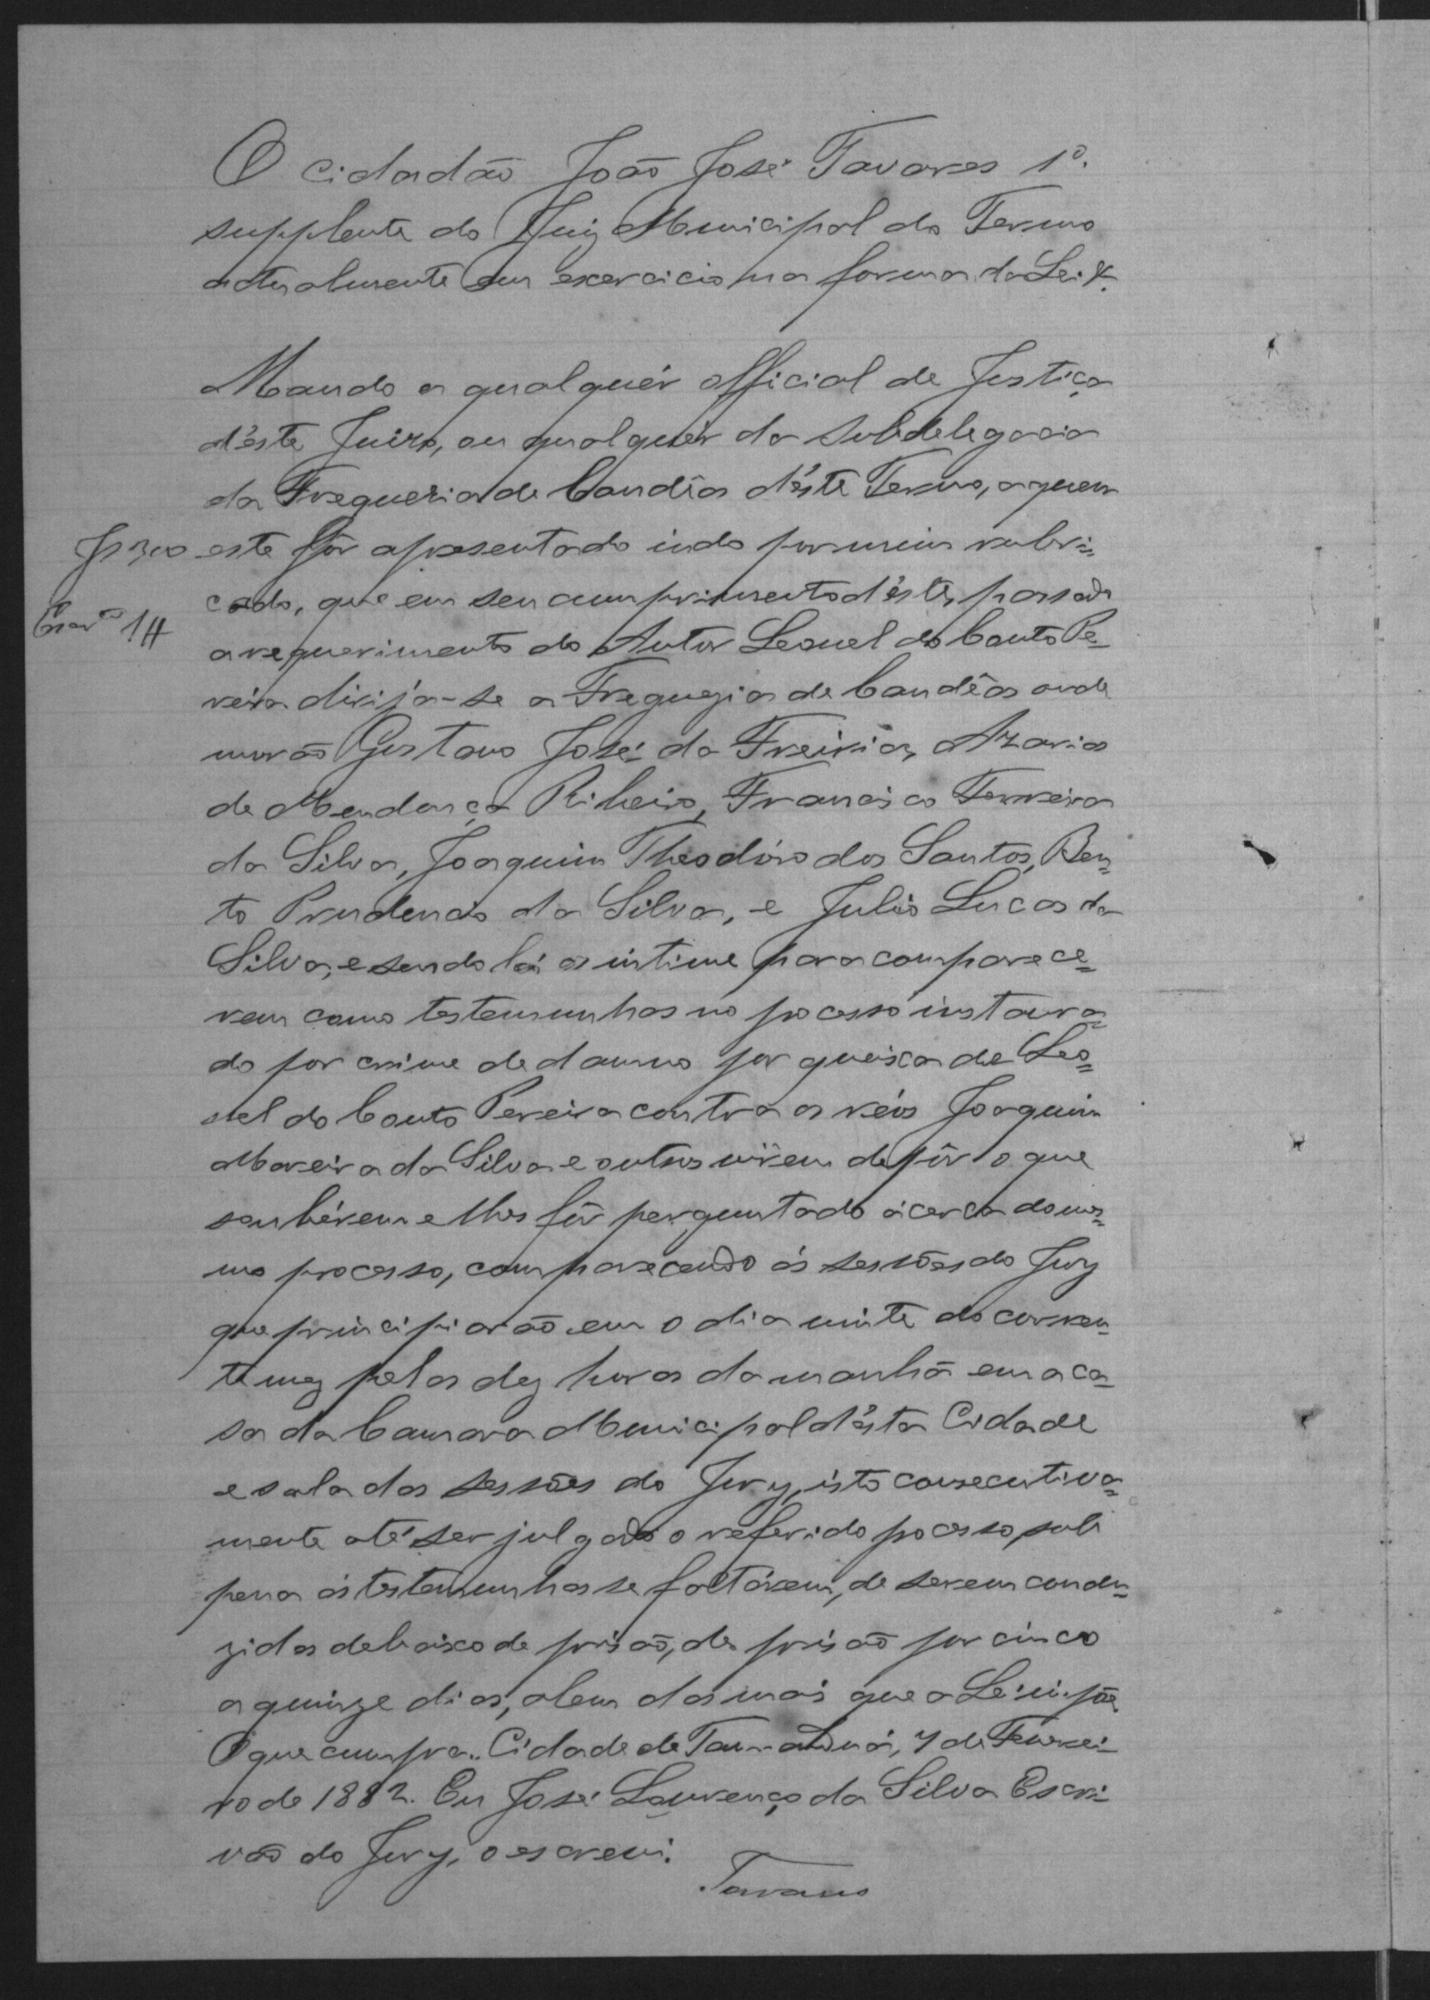 O cidadão João José Tavares 1º.
supplente do Juiz Municipal do Termo
actualmente em exercicio na forma da Lei &.
Mando a qualquér official de Justiça
d'éste Juizo, ou qualquér da Subdelegacia
da Fregueria de Candêas d'éste Termo, a quem
este fôr apresentado indo por mim rubri=
cado, que em seu cumprimento d'éste, passado
a requerimento do Autor Leonel do Couto Pe=
reira dirija-se a Freguezia de Candêas onde
morão Gustavo José da Freiria, Azarias
de Mendonça Ribeiro, Francisco Ferreira
da Silva, Joaquim Theodóro dos Santos, Ben=
to Prudencio da Silva, e Julio Lucas da
Silva, e sendo lá os intime para comparece=
rem como testemunhas no pocesso instaura=
do por crime de damno por queixa de Leo=
nel do Couto Pereira contra os réos Joaquim
Moreira da Silva e outros virem depôr o que
soubérem e lhes fôr perguntado ácerca do mes=
mo processo, comparecendo ás sessões do Jury
que principiarão em o dia vinte do corren=
te mez pelas dez horas da manhã em a ca=
sa da Camara Municipal d'ésta Cidade
e sala das sessões do Jury, isto consecutiva=
mente até ser julgado o referido pocesso, sob
pena ás testemunhas se faltárem, de serem condu=
zidas debaixo de prisão, de prisão por cinco
a quinze dias, alem do mais que a Lei impõe
O que cumpra. Cidade de Tamanduá, 7 de Feverei=
ro de 1882. Eu José Lourenço da Silva Escri=
vão do Jury, o escrevi.
Tavares